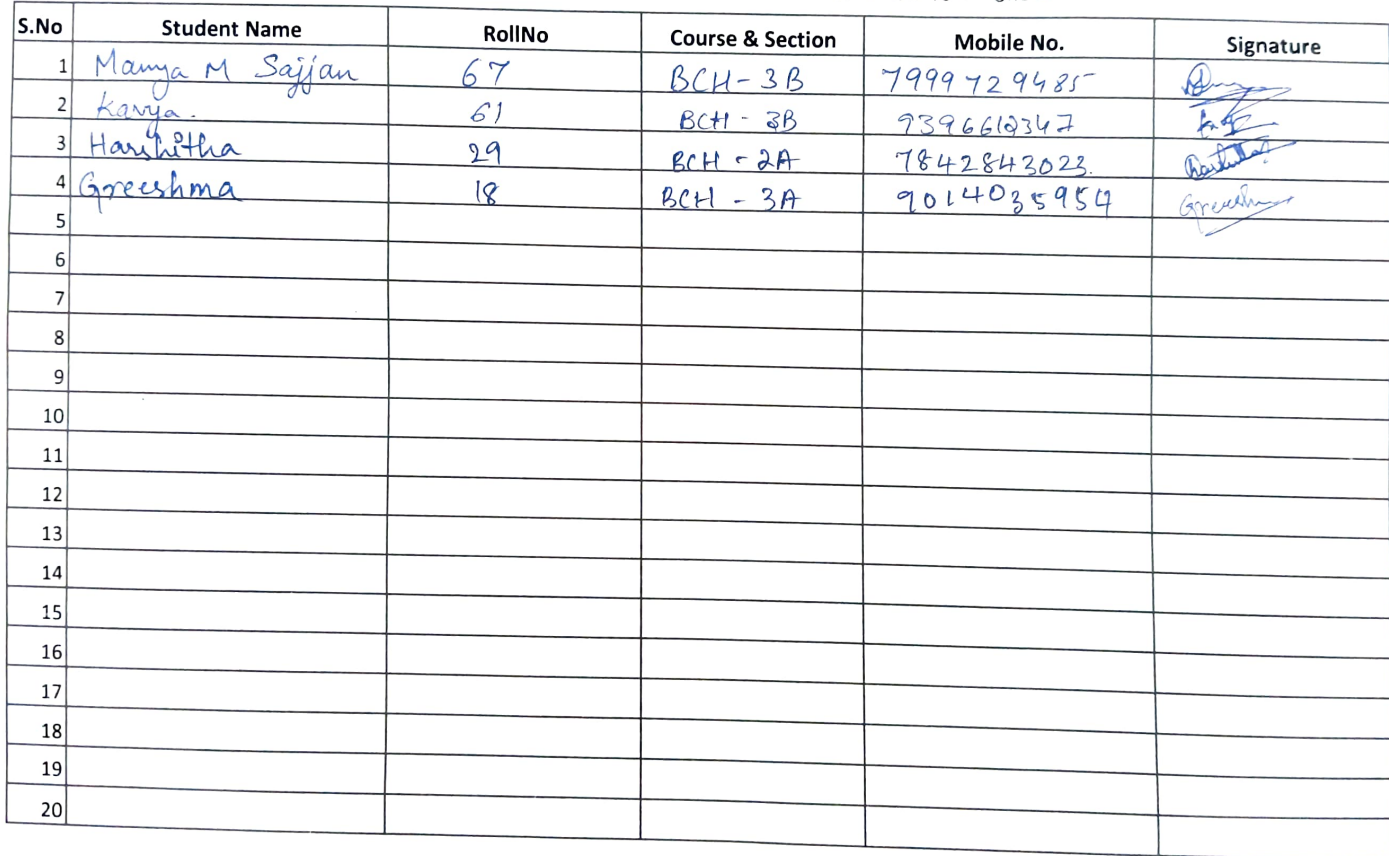 S.No Student Name RollNo Course & Section Mobile No. Signature
1 Manya M Sajjan 67 BCH - 3B 7999729485
2 Kavya. 61 BCH - 3B 9396612347
3 Harshitha 29 BCH - 2A 7842843023.
4 Greeshma 18 BCH - 3A 9014035954 Greeshma
5
6
7
8
9
10
11
12
13
14
15
16
17
18
19
20